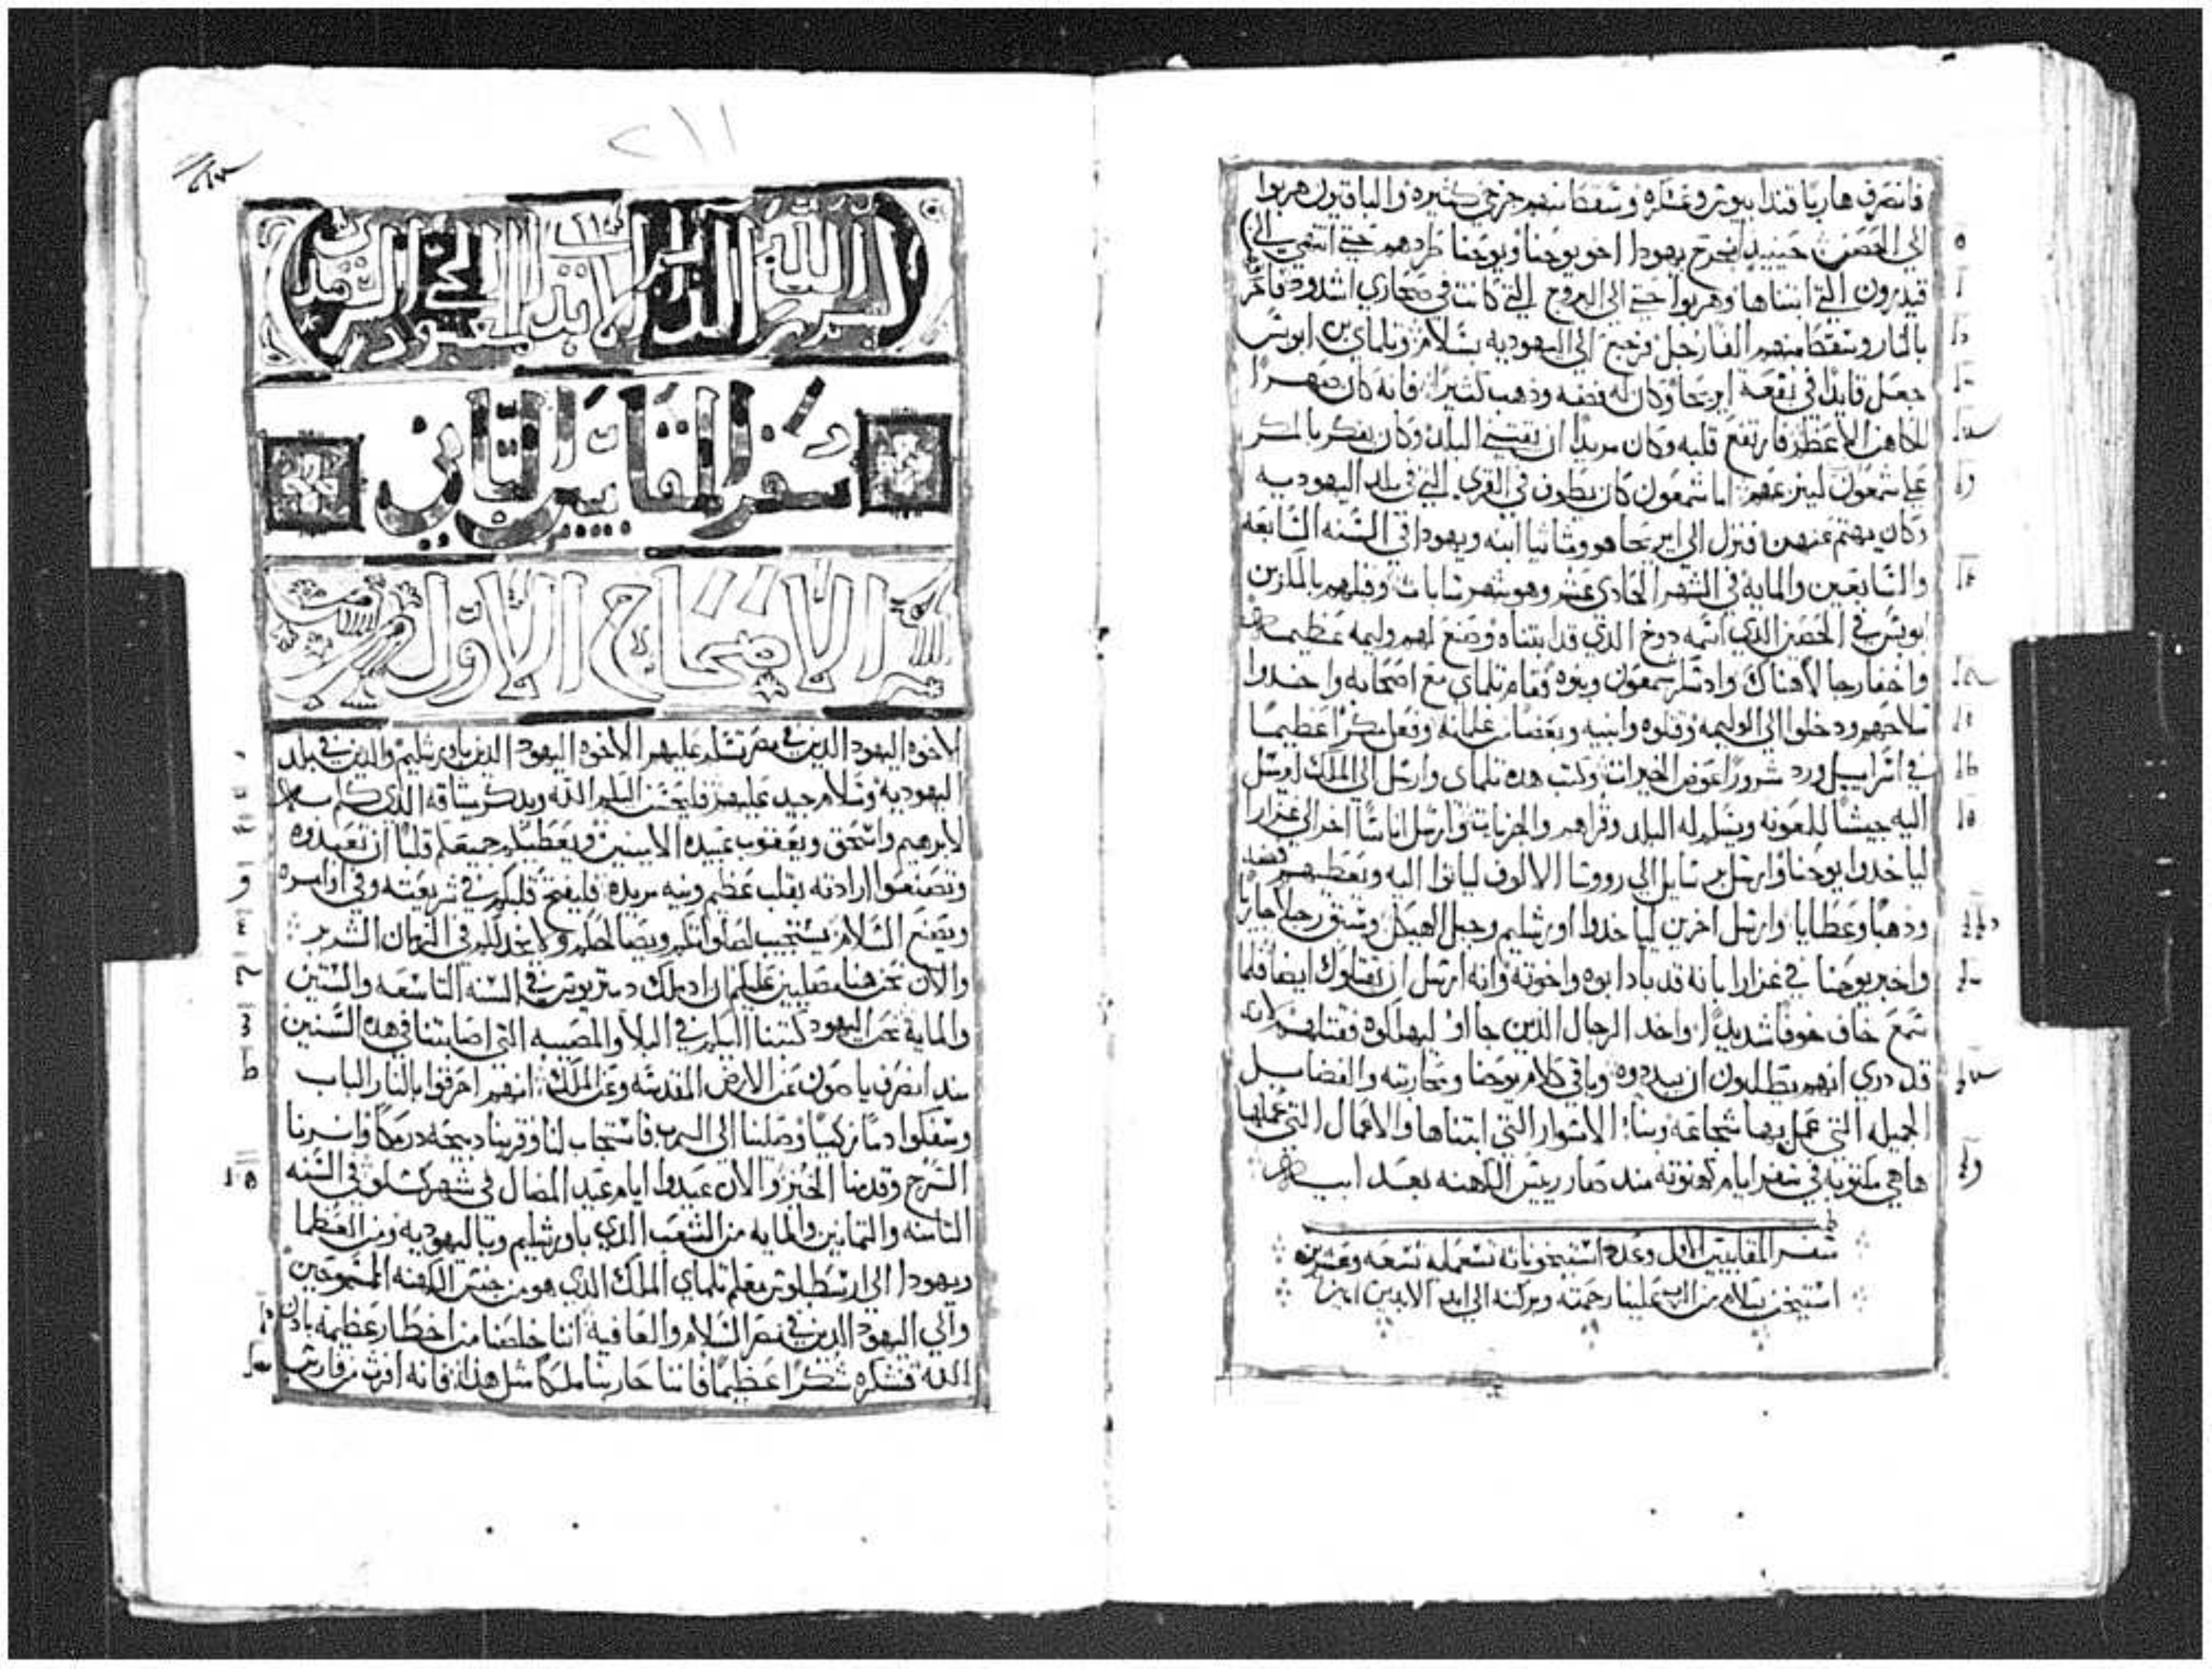 فانصرف هاربا قندابيوس وعسكره وسقط منهم جرحي كثيره والباقيون هربوا
الي الحصن حينيد انجرح يهودا اخو يوحنا ويوحنا طردهم حتي انتهي الي
قيدرون التي ابتناها وهربوا حتي الي البروج التي كانت في صحاري اشدود فاحرقها
بالنار وسقط منهم الفا رجل فرجع الي اليهوديه بسلام وتلماي بن ابوبس
جعل قايدا في بقعة اريحا وكان له فضه وذهب كثيرا فانه كان صهرا
للكاهن الاعظم فارتفع قلبه وكان مريدا ان يقتني البلد وكان يفكر بالمكر
علي شمعون لينزعهم اما شمعون كان يطوف في القري التي في بلد اليهوديه
وكان يهتم عنهن فنزل الي اريحا هو ومتاثيا ابنه ويهودا في السنه السابعه
والسابعين والمايه في الشهر الحادي عشر وهو شهر ساباث وقبلهم بالمكر بن
ابوبس في الحصن الذي اسمه دوخ الذي قد ابتناه وصنع لهم وليمه عظيمه
واخفا رجالا هناك واد سكر شمعون وبنوه فقام تلماي مع اصحابه واخدوا
سلاحهم ودخلوا الي الوليمه وقتلوه وابنيه وبعضا من غلمانه وفعل مكرا عظيما
في اسراييل ورد شرورا عوض الخيرات وكتب هده تلماي وارسل الي الملك ليرسل
اليه جيشا للمعونه ويسلم له البلد وقراهم والجزيات وارسل اناسا اخر الي غزارا
لياخدوا يوحنا وارسل رسايل الي رووسا الالوف لياتوا اليه ويعطيهم فضه
وذهبا وعطايا وارسل اخرين لياخدوا اورشليم وجبل الهيكل وسبق رجلا جاريا
واخبر يوحنا في غزارا بانه قد باد ابوه واخوته وانه ارسل ان تقتلوك ايضا فلما
سمع خاف خوفا شديدا واخد الرجال الذين جااوا ليهلكوه فقتلهم لانه
قد دري انهم يطلبون ان يبددوه وباقي كلام يوحنا ومحاربته والفضايل
الجميله التي عمل بها شجاعه وبناء الاسوار التي ابتناها والاعمال التي عملها
ها هي مكتوبه في سفر ايام كهنوته مند صار رييس الكهنه بعد ابيه
سفر المقابيين الاول وعدة استيخوناته تسعمايه تسعه وعشرين
استيخن بسلام من الرب علينا رحمته وبركته الي ابد الابدين امين
٢١١
بسم الله الدايم الابدي الحي السرمدي
سفر المقابيين الثاني
الاصحاح الاول
للاخوه اليهود الدين في مصر تسلم عليهم الاخوه اليهود الدين باورشليم والدين في بلد
اليهوديه وسلام جيد عليهم فليحسن اليكم الله ويدكر ميثاقه الذي كلم به
لابرهيم واسحق ويعقوب عبيده الامينين ويعطيكم جميعكم قلبا ان تعبدوه
وتصنعوا ارادته بقلب عظيم ونيه مريده فليفتح قلبكم في شريعته وفي اوامره
ويصنع السلام يستجيب لصلواتكم ويصالحكم ولا يخدلكم في الزمان الشرير
والان نحن هنا مصليين عليكم ان اد ملك دمتريوس في السنه التاسعه والستين
والمايه نحن اليهود كتبنا اليكم في البلا والمصيبه التي اصابتنا في هده السنين
مند انصرف ياصون عن الارض المقدسه وعن الملك انهم احرقوا بالنار الباب
وسفكوا دما زكيا وصلينا الي الرب فاستجاب لنا وقربنا دبيحه درمكا واسرنا
السرج وقدمنا الخبز والان عيدوا ايام عيد المضال في شهر كسلو في السنه
الثامنه والتمانين والمايه من الشعب الذي باورشليم وباليهوديه ومن العظما
ويهودا الي ارسطلوس معلم تلماي الملك الذي هو من جنس الكهنه الممسوحين
والي اليهود الدين في مصر السلام والعافيه اننا خلصنا من اخطار عظيمه بادن
الله فنشكره شكرا عظيما فاننا حاربنا ملكا مثل هذا فانه افرت من فارس